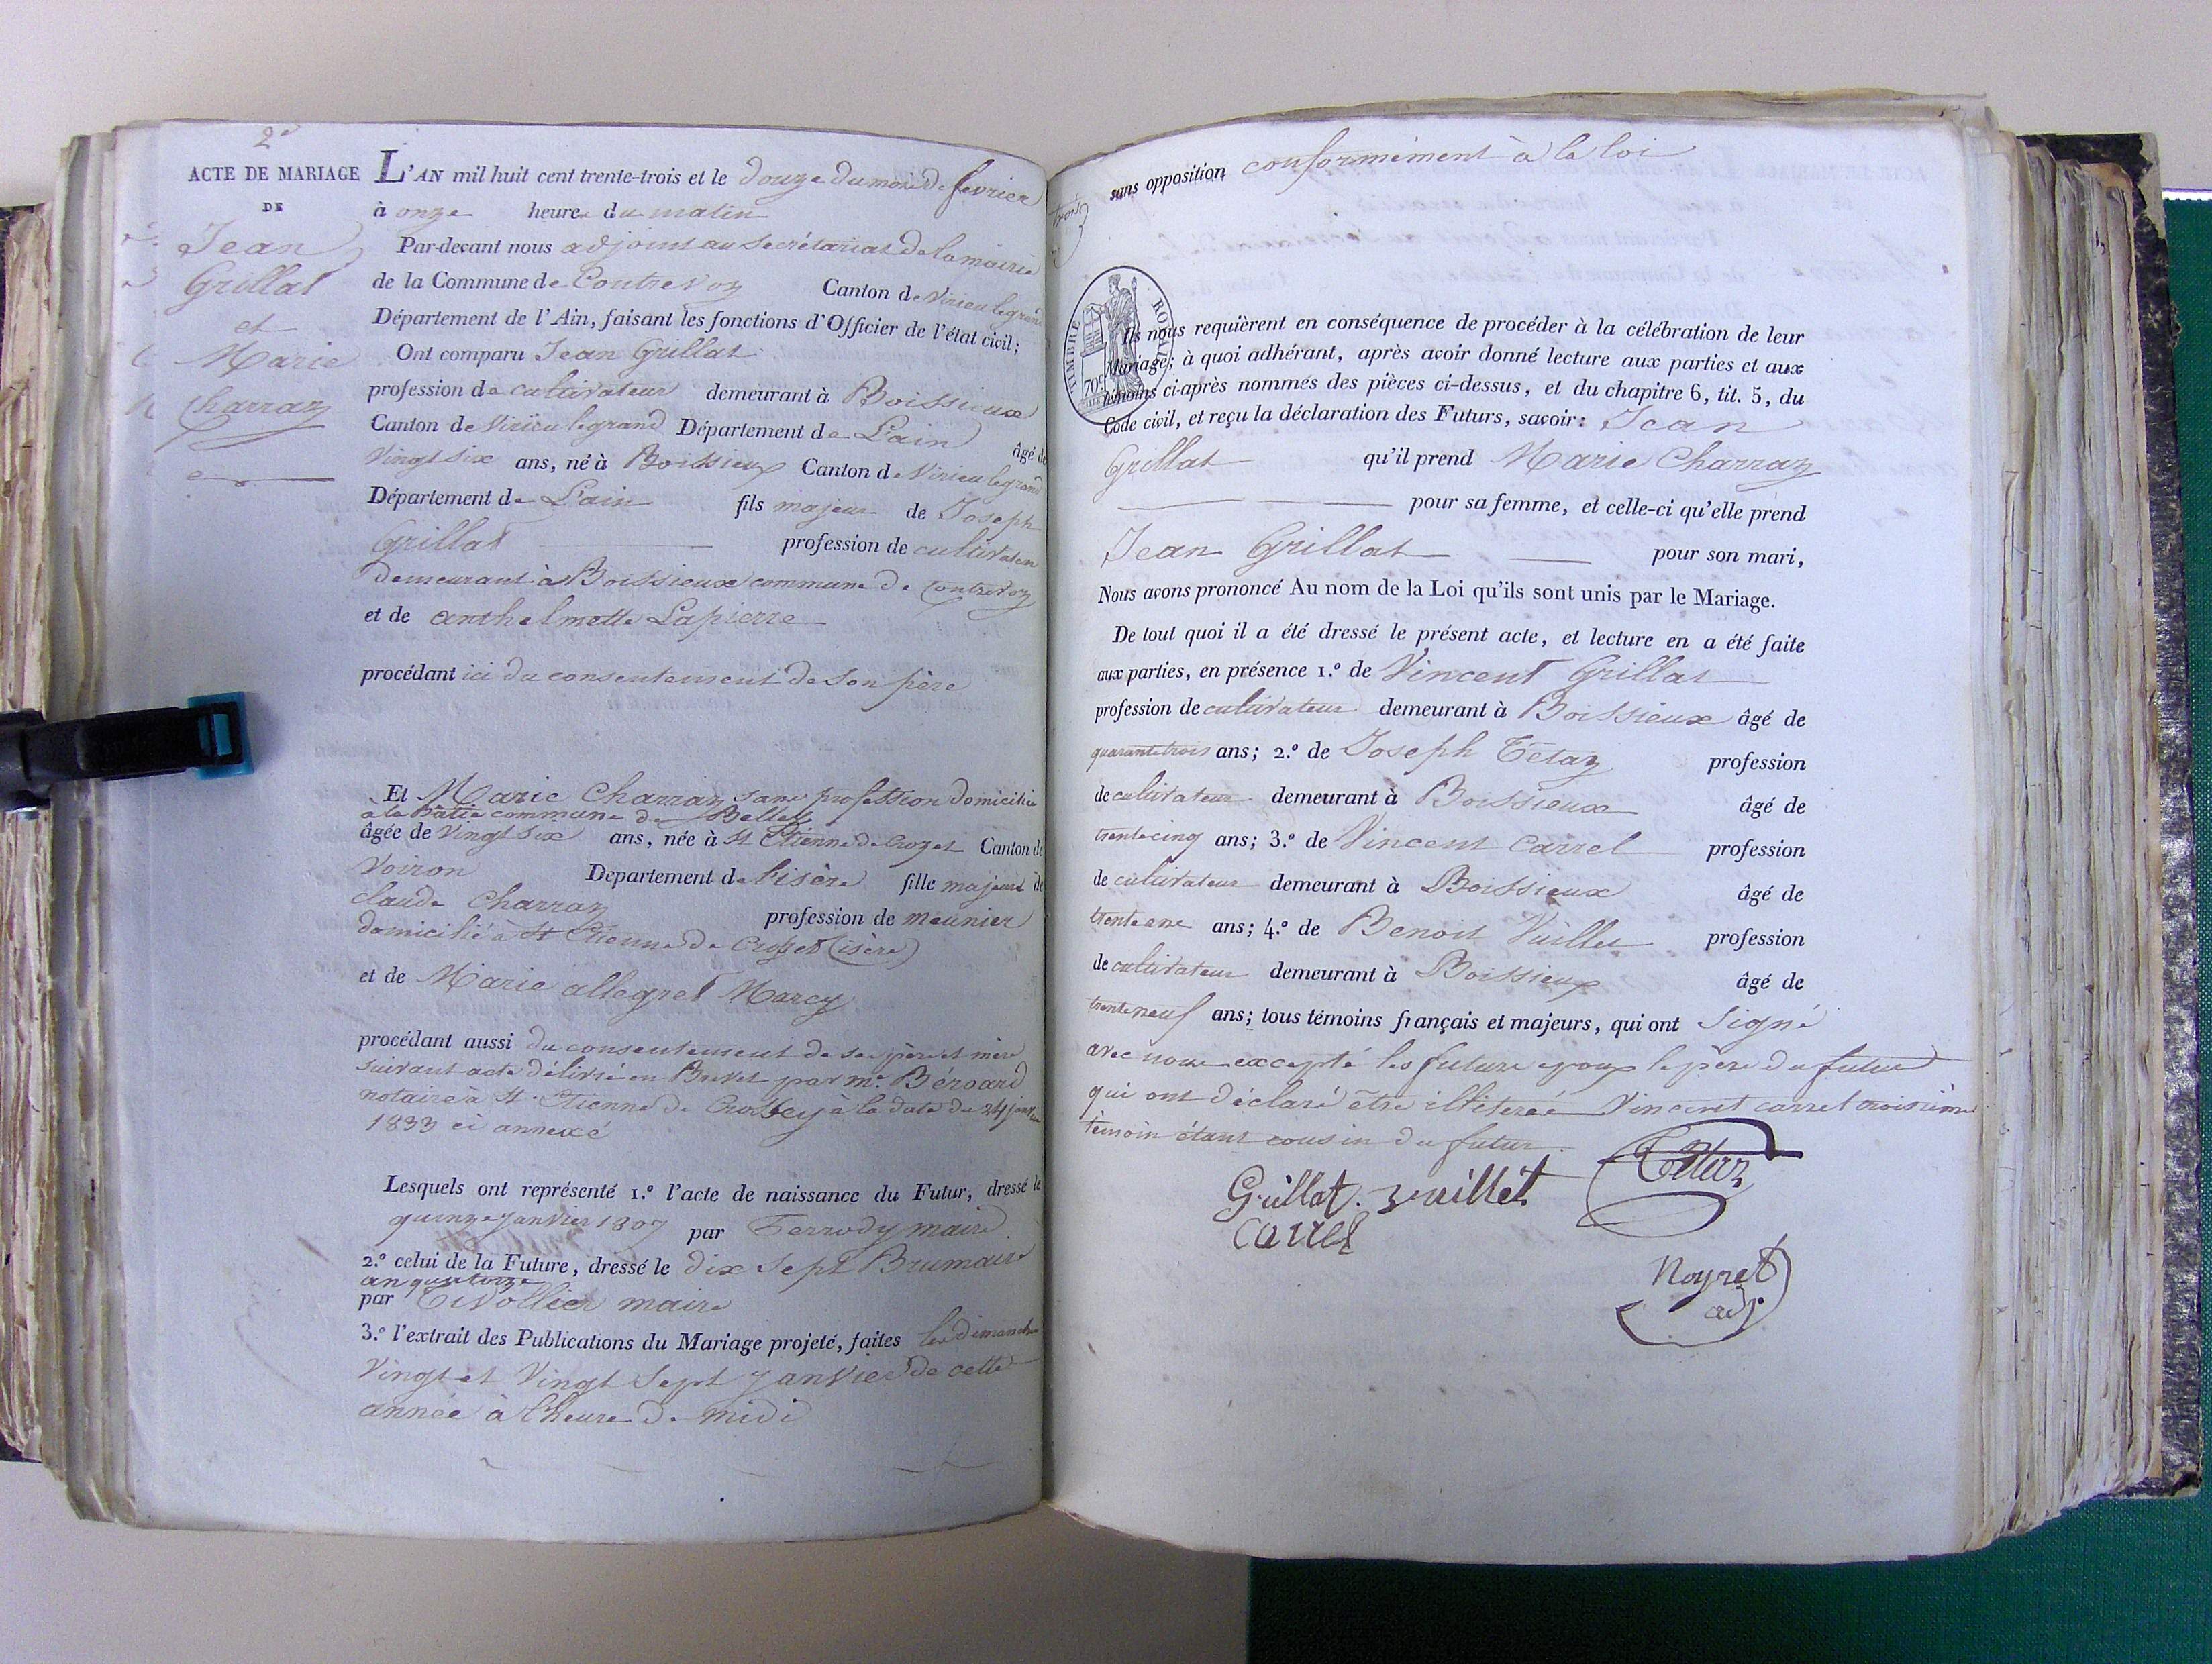 2e
ACTE DE MARIAGE
DE
Jean
Grillat
et
Marie
Charraz
L'AN mil huit cent trente-trois et le douze du mois de fevrier
à onze heures du matin
Par-devant nous adjoint au secrétariat de la mairie
de la Commune de Contrevoz Canton de Virieu le grand
Département de l'Ain, faisant les fonctions d'Officier de l'état civil;
Ont comparu Jean Grillat
profession de cultivateur demeurant à Boissieux
Canton de Virieu le grand Département de L'ain âgé de
Vingt six ans, né à Boissieux Canton de Virieu le grand
Département de L'ain fils majeur de Joseph
Grillat profession de cultivateur
demeurant à Boissieux commune de Contrevoz
et de anthelmette Lapierre
procédant ici du consentement de son père
Et Marie Charraz sans profession domiciliée
à la Bâtie commune de Belley
âgée de Vingt six ans, née à St Etienne de Crozet Canton de
Voiron Departement de l'isère fille majeure de
claude Charraz profession de meunier
domicilié à St Etienne de Crosset (isère)
et de Marie allegret Marcy
procédant aussi du consentement de ses père et mère
suivant acte délivré en Brevet par me Béroard
notaire à St Etienne de Crossey à la date du 24 janvier
1833 ci annexé
Lesquels ont représenté 1.º l'acte de naissance du Futur, dressé le
quinze janvier 1807 par Ferrody maire
2.º celui de la Future, dressé le dix sept Brumaire
an quatorze
par Tivollier maire
3.º l'extrait des Publications du Mariage projeté, faites les dimanches
Vingt et Vingt Sept janvier de cette
année à l'heure de midi
sans opposition conformément à la loi
TIMBRE ROYAL
70c
Ils nous requièrent en conséquence de procéder à la célébration de leur
Mariage; à quoi adhérant, après avoir donné lecture aux parties et aux
témoins ci-après nommés des pièces ci-dessus, et du chapitre 6, tit. 5, du
Code civil, et reçu la déclaration des Futurs, savoir: Jean
Grillat qu'il prend Marie Charraz
pour sa femme, et celle-ci qu'elle prend
Jean Grillat pour son mari,
Nous avons prononcé Au nom de la Loi qu'ils sont unis par le Mariage.
De tout quoi il a été dressé le présent acte, et lecture en a été faite
aux parties, en présence 1.º de Vincent Grillat
profession de cultivateur demeurant à Boissieux âgé de
quarante trois ans; 2.º de Joseph Tétaz profession
de cultivateur demeurant à Boissieux âgé de
trente cinq ans; 3.º de Vincent Carrel profession
de cultivateur demeurant à Boissieux âgé de
trente une ans; 4.º de Benoit Vuillet profession
de cultivateur demeurant à Boissieux âgé de
trente neuf ans; tous témoins français et majeurs, qui ont signé
avec nous excepté les futurs epoux le père du futur
qui ont déclaré être illiterés Vincent carrel troisième
témoin étant cousin du futur.
Grillat. Vuillet Tétaz
Carrel
Noyret
adj.